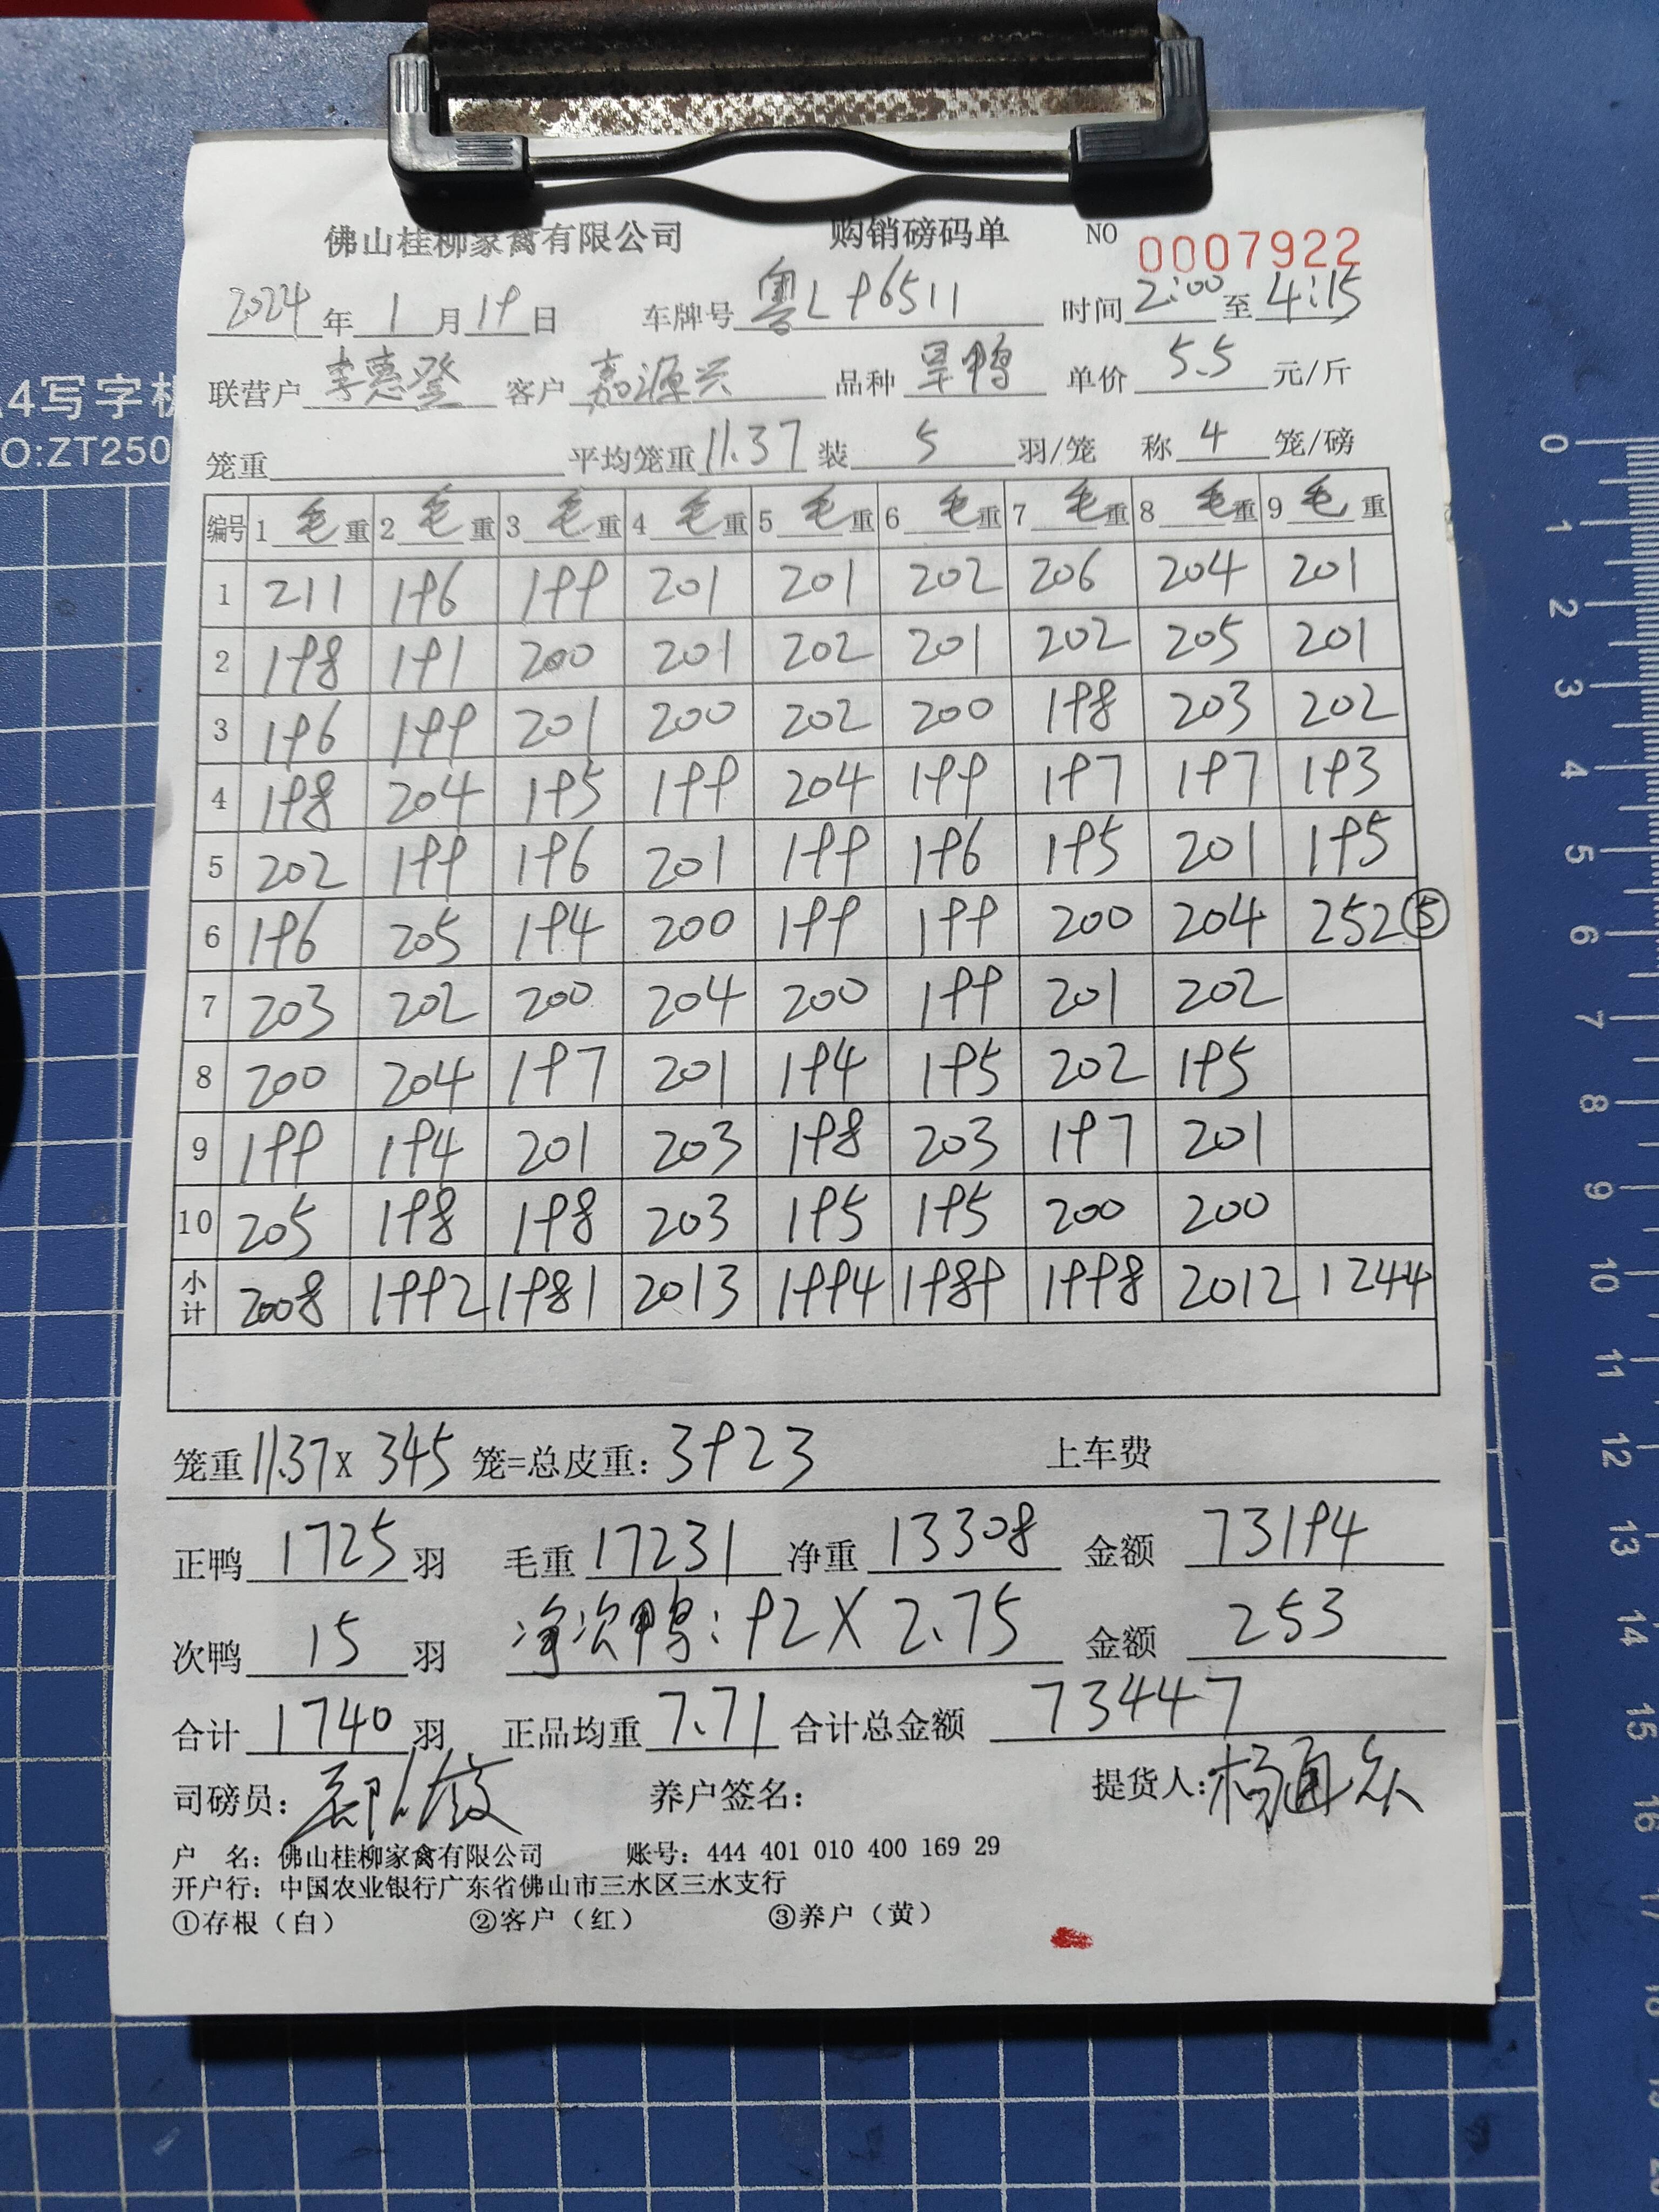 佛山桂柳家禽有限公司 购销磅码单 NO 0007922
2024年1月19日 车牌号 粤L96511 时间 2:00 至 4:15
联营户 李惠登 客户 嘉源兴 品种 旱鸭 单价 5.5 元/斤
笼重 平均笼重 11.37 装 5 羽/笼 称 4 笼/磅
编号 1 毛重 2 毛重 3 毛重 4 毛重 5 毛重 6 毛重 7 毛重 8 毛重 9 毛重
1 211 196 199 201 201 202 206 204 201
2 198 191 200 201 202 201 202 205 201
3 196 199 201 200 202 200 198 203 202
4 198 204 195 199 204 199 197 197 193
5 202 199 196 201 199 196 195 201 195
6 196 205 194 200 199 199 200 204 252⑤
7 203 202 200 204 200 199 201 202
8 200 204 197 201 194 195 202 195
9 199 194 201 203 198 203 197 201
10 205 198 198 203 195 195 200 200
小计 2008 1992 1981 2013 1994 1989 1998 2012 1244
笼重 11.37 x 345 笼=总皮重: 3923 上车费
正鸭 1725 羽 毛重 17231 净重 13308 金额 73194
次鸭 15 羽 净次鸭: 92 X 2.75 金额 253
合计 1740 羽 正品均重 7.71 合计总金额 73447
司磅员: 养户签名: 提货人: 杨通众
户 名: 佛山桂柳家禽有限公司 账号: 444 401 010 400 169 29
开户行: 中国农业银行广东省佛山市三水区三水支行
①存根(白) ②客户(红) ③养户(黄)
A4写字板
NO:ZT250
0
1
2
3
4
5
6
7
8
9
10
11
12
13
14
15
16
17
18